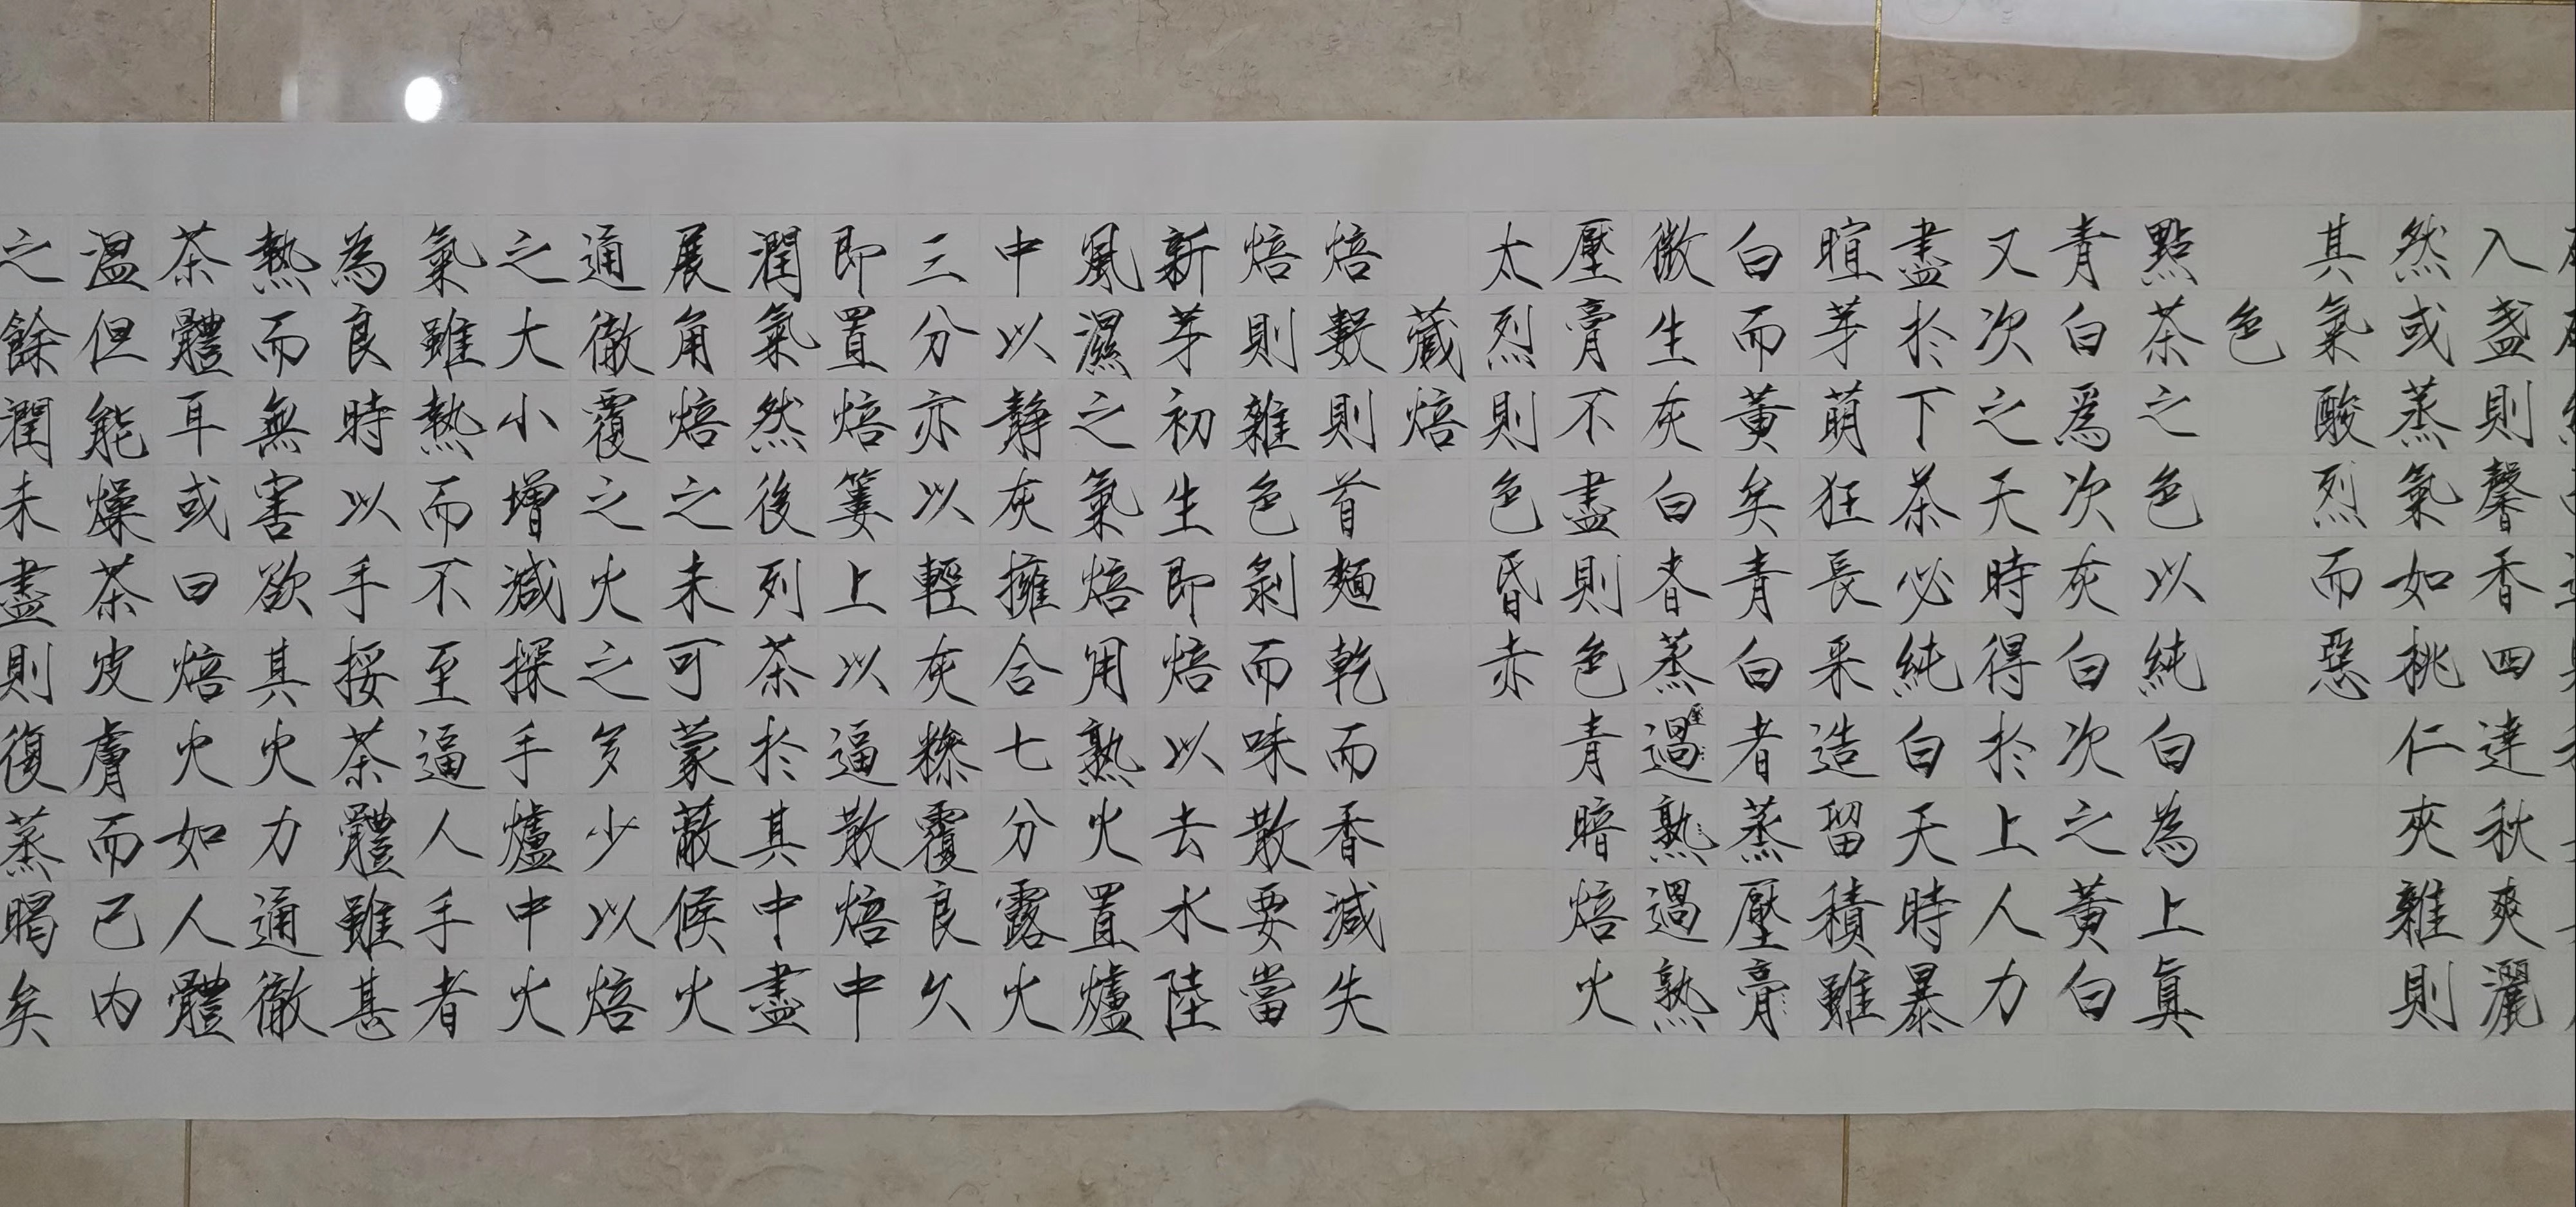 入盏則馨香四達秋爽灑
然或蒸氣如桃仁夾雜則
其氣酸烈而惡
色
點茶之色以純白為上真
青白爲次灰白次之黃白
又次之天時得於上人力
盡於下茶必純白天時暴
暄芽萌狂長采造留積雖
白而黃矣青白者蒸壓膏
微生灰白者蒸壓過熟過熟
壓膏不盡則色青暗焙火
太烈則色昏赤
藏焙
焙數則首麵乾而香減失
焙則雜色剝而味散要當
新芽初生即焙以去水陸
風濕之氣焙用熟火置爐
中以靜灰擁合七分露火
三分亦以輕灰糝覆良久
即置焙簍上以逼散焙中
潤氣然後列茶於其中盡
展角焙之未可蒙蔽候火
通徹覆之火之多少以焙
之大小增減探手爐中火
氣雖熱而不至逼人手者
為良時以手挼茶體雖甚
熱而無害欲其火力通徹
茶體耳或曰焙火如人體
溫但能燥茶皮膚而已內
之餘潤未盡則復蒸暍矣